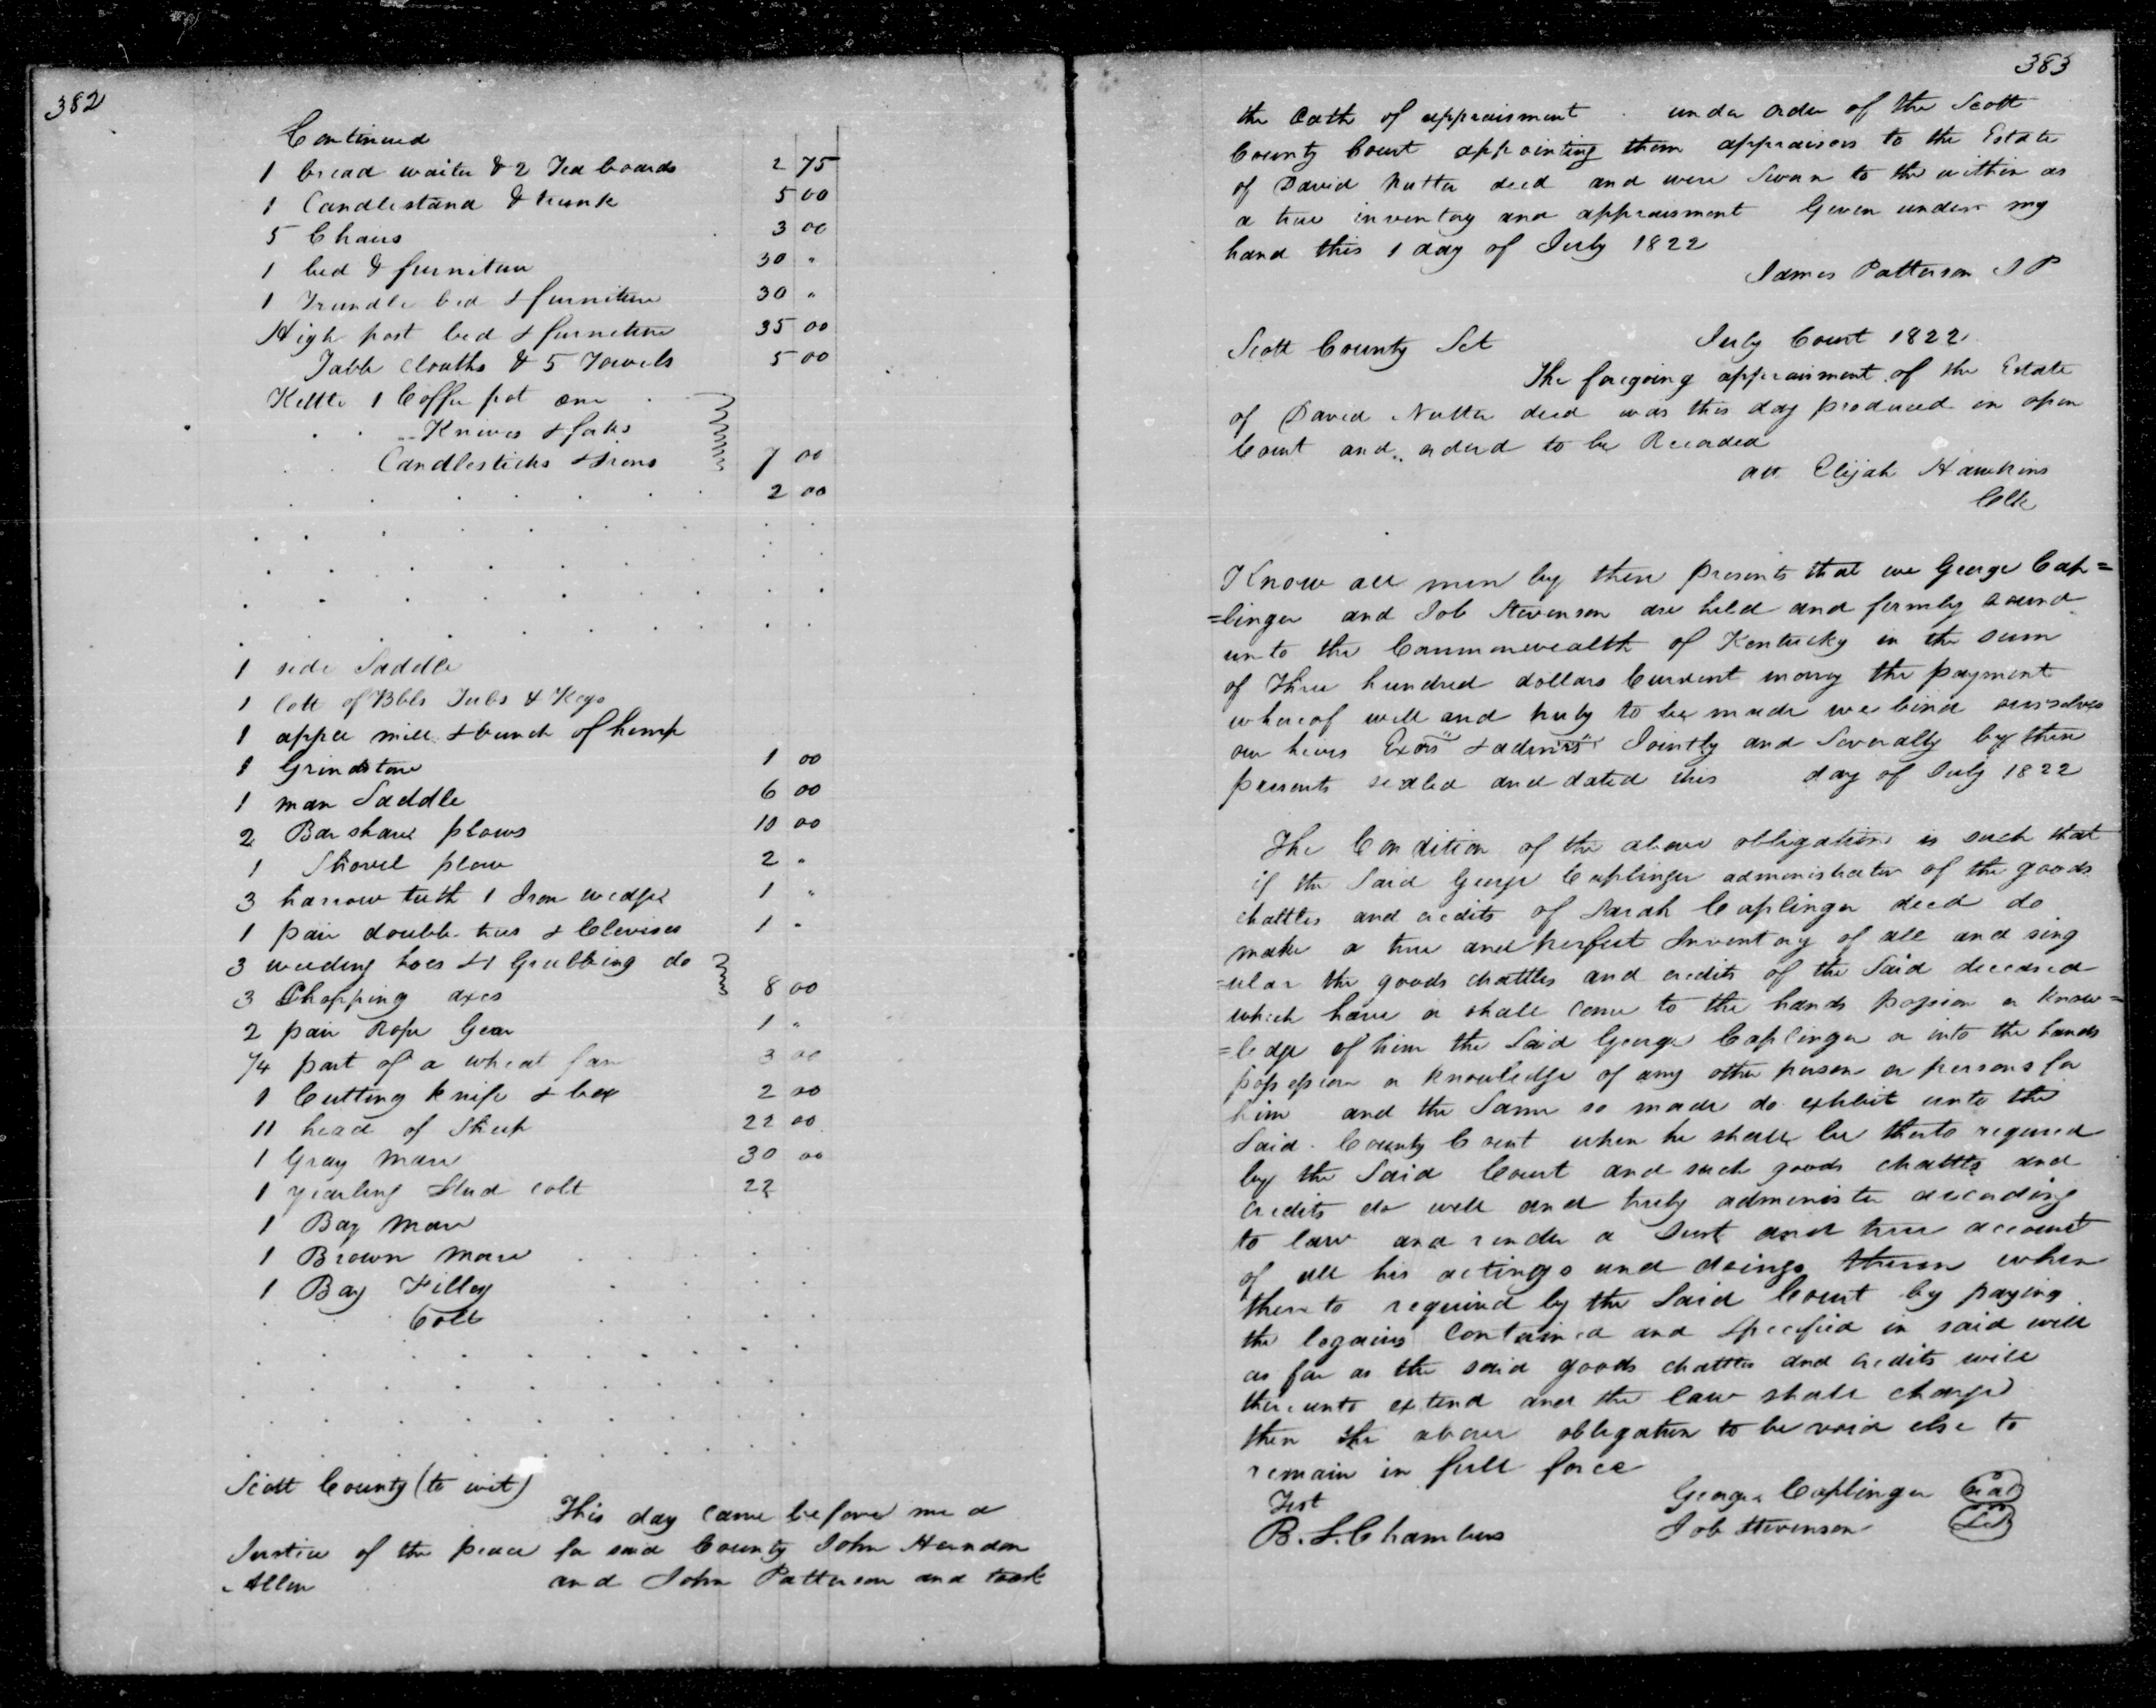 382
Continued
1 bread waiter & 2 Tea boards 2 75
1 Candlestand & trunk 5 00
5 Chairs 3 00
1 bed & furniture 30 "
1 Trundle bed & furniture 30 "
High post bed & furniture 35 00
Table clouths & 5 Towels 5 00
Kettle 1 Coffee pot one
Knives & forks
Candlesticks & Irons 7 00
2 00
1 side Saddle
1 lott of Bbls Tubs & Kegs
1 apple mill & bunch of hemp
1 Grindstone 1 00
1 man Saddle 6 00
2 Barshare plows 10 00
1 Shovel plow 2 "
3 harrow teeth 1 Iron wedge 1 "
1 pair double trees & Clevises 1 "
3 weeding hoes & 1 Grubbing do
3 Chopping axes 8 00
2 pair Rope Gear 1 "
1/4 part of a wheat fan 3 00
1 Cutting knife & box 2 00
11 head of Sheep 22 00
1 Gray mare 30 00
1 yearling Stud colt 22
1 Bay mare
1 Brown mare
1 Bay Filley
Colt
Scott County (to wit)
This day came before me a
Justice of the peace for said County John Herndon
Allen and John Patterson and took
383
the Oath of appraisment under order of the Scott
County Court appointing them appraisors to the Estate
of David Nutter decd and were Sworn to the within as
a true inventory and appraisment Given under my
hand this 1 day of July 1822
James Patterson J P
Scott County Sct July Court 1822
The foregoing appraisment of the Estate
of David Nutter decd was this day produced in open
Court and orderd to be Recorded
att Elijah Hawkins
Clk
Know all men by these presents that we George Cap=
=linger and Job Stevenson are held and firmly bound
unto the Commonwealth of Kentucky in the sum
of Three hundred dollars Current money the payment
whereof well and truly to be made we bind ourselves
our heirs Exors & admrs Jointly and Severally by these
presents sealed and dated this day of July 1822
The Condition of the above obligation is such that
if the Said George Caplinger administrator of the goods
chattles and credits of Sarah Caplinger decd do
make a true and perfect Inventory of all and sing
=ular the goods chattles and credits of the Said deceased
which have or shall come to the hands possion or know=
=ledge of him the Said George Caplinger or into the hands
possession or knowledge of any other person or persons for
him and the Same so made do exhibit unto the
Said County Court when he shall be therto required
by the Said Court and such goods chattls and
credits do well and truly administer according
to law and render a Just and true account
of all his actings and doings therein when
thereto required by the Said Court by paying
the legacies Contained and Specified in said will
as far as the said goods chattles and credits will
thereunto extend and the law shall charge
then the above obligation to be void else to
remain in full force
Test George Caplinger Seal
B. S. Chambers Job Stevenson